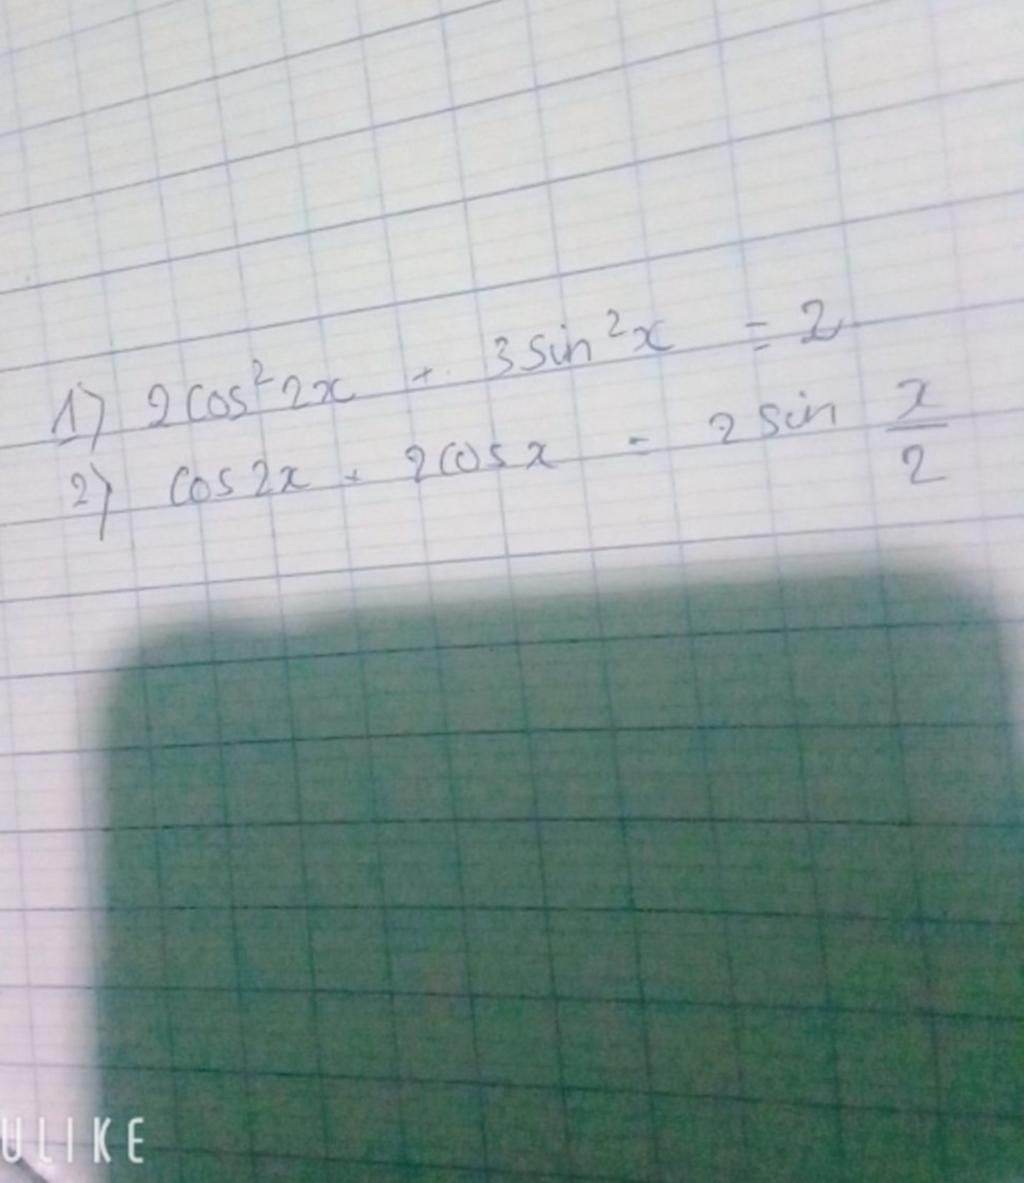 1) 2cos²2x + 3sin²x = 2
2) cos2x + 2cosx = 2sin x/2
ULIKE